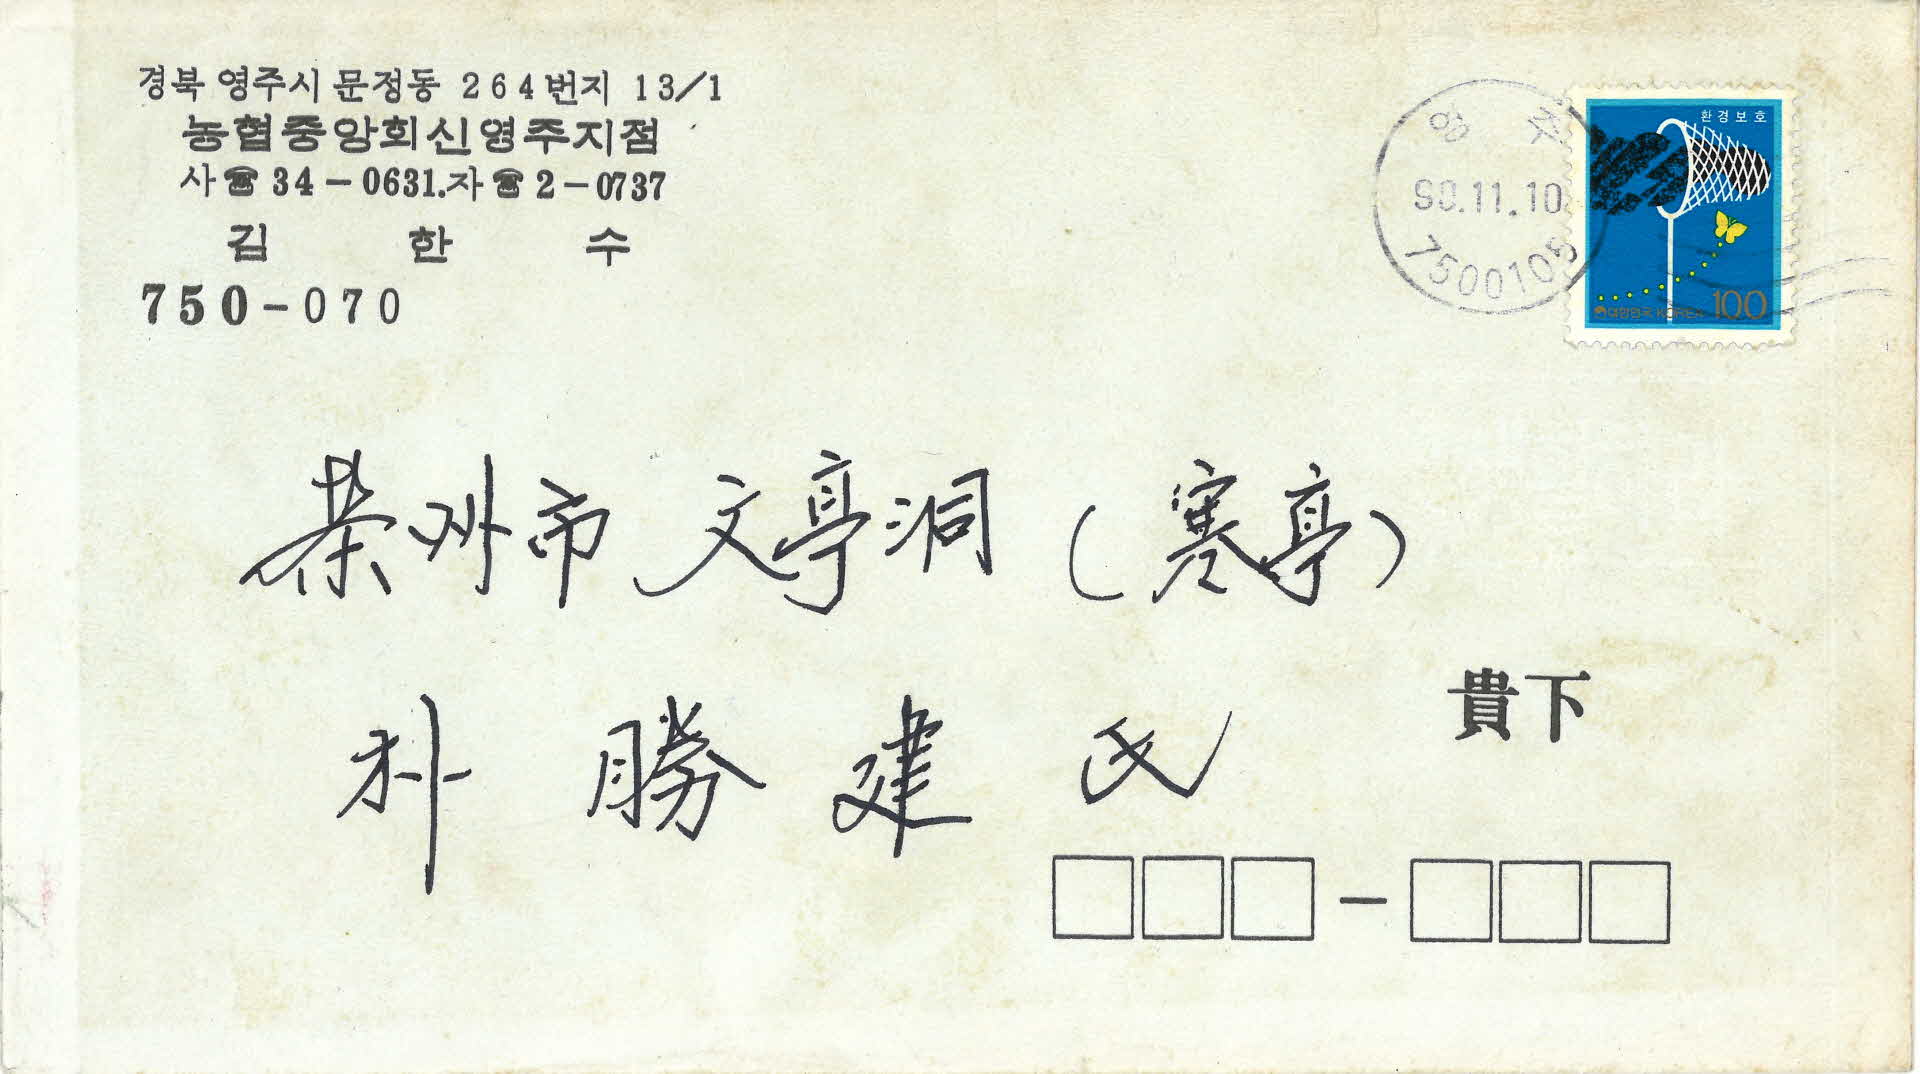 경북 영주시 문정동 264번지 13/1
농협중앙회신영주지점
사☎34-0631.자☎2-0737
김 한 수
750-070
영 주
90.11.10
7500105
환경보호
대한민국 KOREA 100
榮州市 文亭洞 (寒亭)
朴 勝 建 氏
貴下